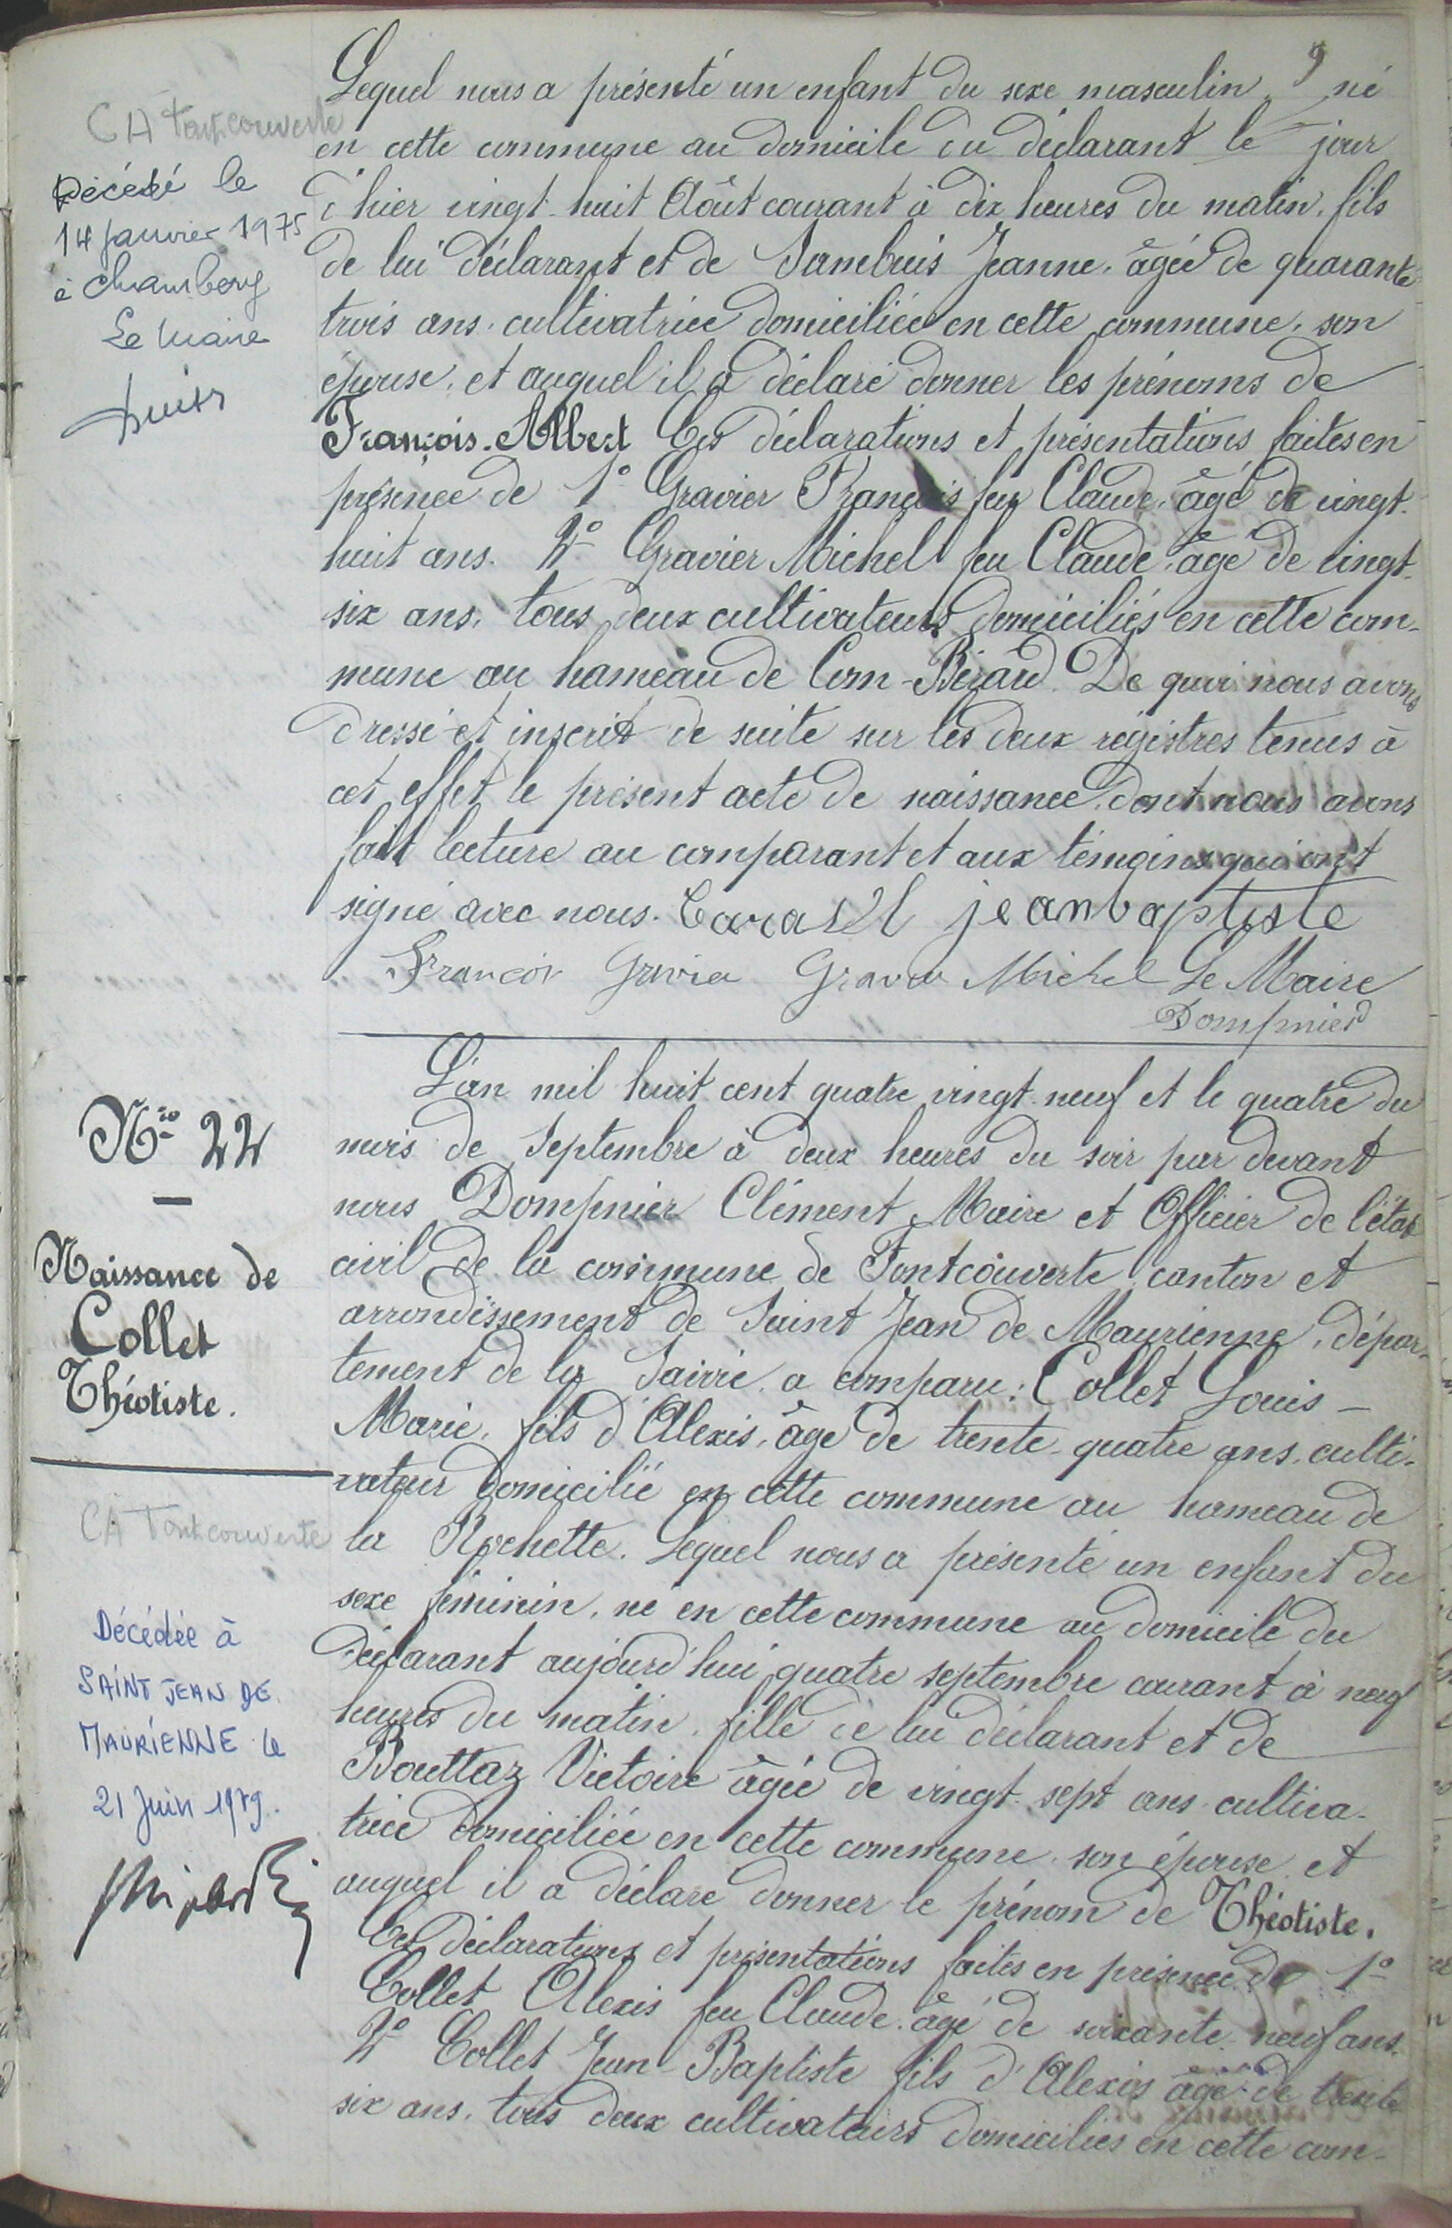 9
Lequel nous a présenté un enfant du sexe masculin, né
en cette commune au domicile du déclarant le jour
d'hier vingt-huit Août courant à dix heures du matin, fils
de lui déclarant et de Sambuis Jeanne, âgée de quarante
trois ans, cultivatrice domiciliée en cette commune, son
épouse, et auquel il a déclaré donner les prénoms de
François-Albert Ces déclarations et présentations faites en
présence de 1° Gravier François feu Claude, âgé de vingt-
huit ans. 2° Gravier Michel feu Claude, âgé de vingt-
six ans, tous deux cultivateurs domiciliés en cette com-
mune au hameau de Com-Bérard. De quoi nous avons
dressé et inscrit de suite sur les deux registres tenus à
cet effet le présent acte de naissance, dont nous avons
fait lecture au comparant et aux témoins qui ont
signé avec nous. jean baptiste
François Gravier Gravier Michel Le Maire
Dompnier
CA Fontcouverte
Décédé le
14 janvier 1975
à Chambery
Le Maire
N° 22
Naissance de
Collet
Théotiste.
CA Fontcouverte
Décédée à
SAINT JEAN DE
MAURIENNE le
21 Juin 1979.
L'an mil huit cent quatre vingt-neuf et le quatre du
mois de Septembre à deux heures du soir par devant
nous Dompnier Clément Maire et Officier de l'état
civil de la commune de Fontcouverte, canton et
arrondissement de Saint Jean de Maurienne, dépar-
tement de la Savoie, a comparu: Collet Louis-
Marie, fils d'Alexis, âgé de trente-quatre ans, culti-
vateur domicilié en cette commune au hameau de
la Rochette. Lequel nous a présenté un enfant du
sexe féminin, né en cette commune au domicile du
déclarant aujourd'hui quatre septembre courant à neuf
heures du matin, fille de lui déclarant et de
Bouttaz Victoire âgée de vingt-sept ans cultiva-
trice domiciliée en cette commune, son épouse, et
auquel il a déclaré donner le prénom de Théotiste.
Ces déclarations et présentations faites en présence de 1°
Collet Alexis feu Claude, âgé de soixante-neuf ans.
2° Collet Jean-Baptiste fils d'Alexis âgé de trente
six ans, tous deux cultivateurs domiciliés en cette com-